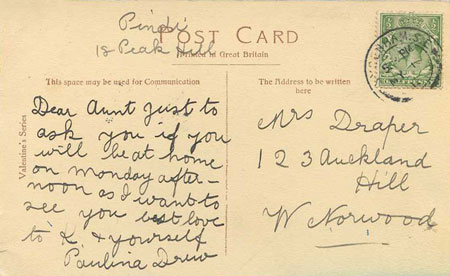 Pindi
18 Peak Hill
POST CARD
Printed in Great Britain
This space may be used for Communication
The Address to be written
here
Valentine's Series
Dear Aunt Just to
ask you if you
will be at home
on Monday after-
noon as I want to
see you best love
to K. & yourself
Paulina Drew
Mrs Draper
123 Auckland
Hill
W Norwood